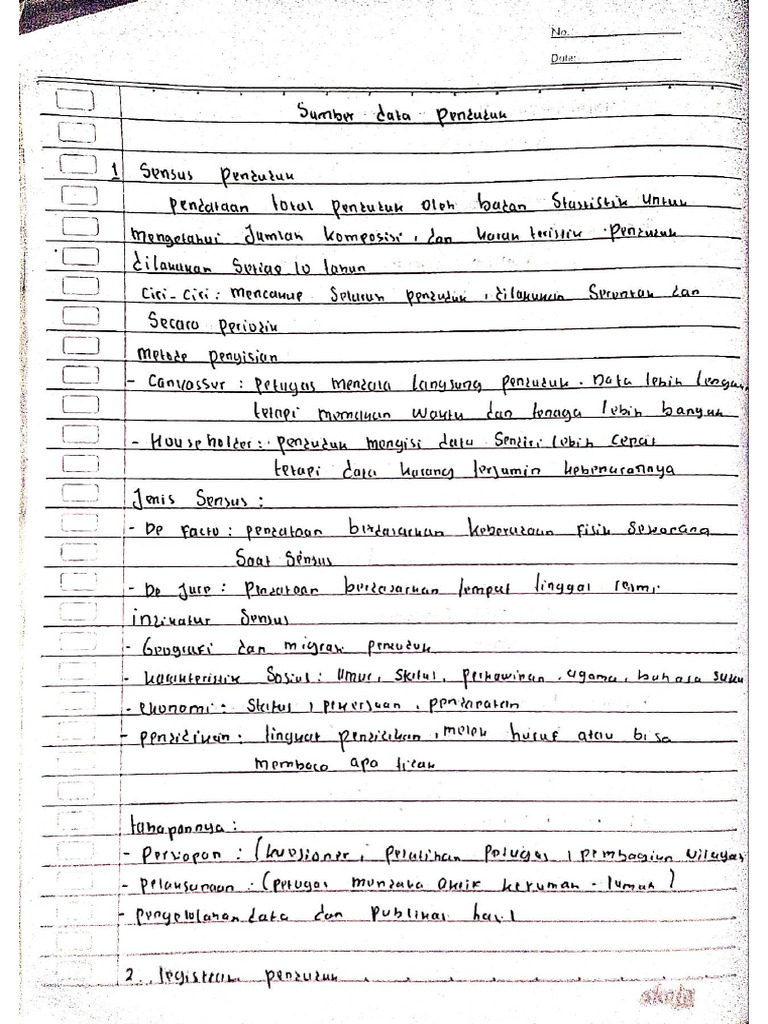 No.
Date:
Sumber data penduduk
1 Sensus penduduk
pendataan total penduduk oleh badan Statistik untuk
mengetahui Jumlah komposisi, dan karakteristik penduduk
dilakukan Setiap 10 tahun
Ciri-Ciri: mencakup Seluruh penduduk, dilakukan Serentak dan
Secara periodik
metode pengisian
- Canvasser : petugas mendata langsung penduduk. Data lebih lengkap
tetapi memakan waktu dan tenaga lebih banyak
- House holder: penduduk mengisi data Sendiri lebih cepat
tetapi data kurang terjamin kebenarannya
Jenis Sensus :
- De Facto : pendataan berdasarkan keberadaan fisik sekarang
Saat Sensus
- De Jure : Pendataan berdasarkan tempat tinggal resmi
indikator Sensus
- Geografi dan migrasi penduduk
- karakteristik Sosial : Umur, Status, perkawinan, agama, bahasa suku
- ekonomi : Status, pekerjaan, pendapatan
- pendidikan : tingkat pendidikan, melek huruf atau bisa
membaca apa tidak
tahapannya :
- Persiapan : (kuesioner, pelatihan petugas, pembagian wilayah
- pelaksanaan : (petugas mendata aktif kerumah-rumah)
- pengelolahan data dan publikasi hasil
2. registrasi penduduk